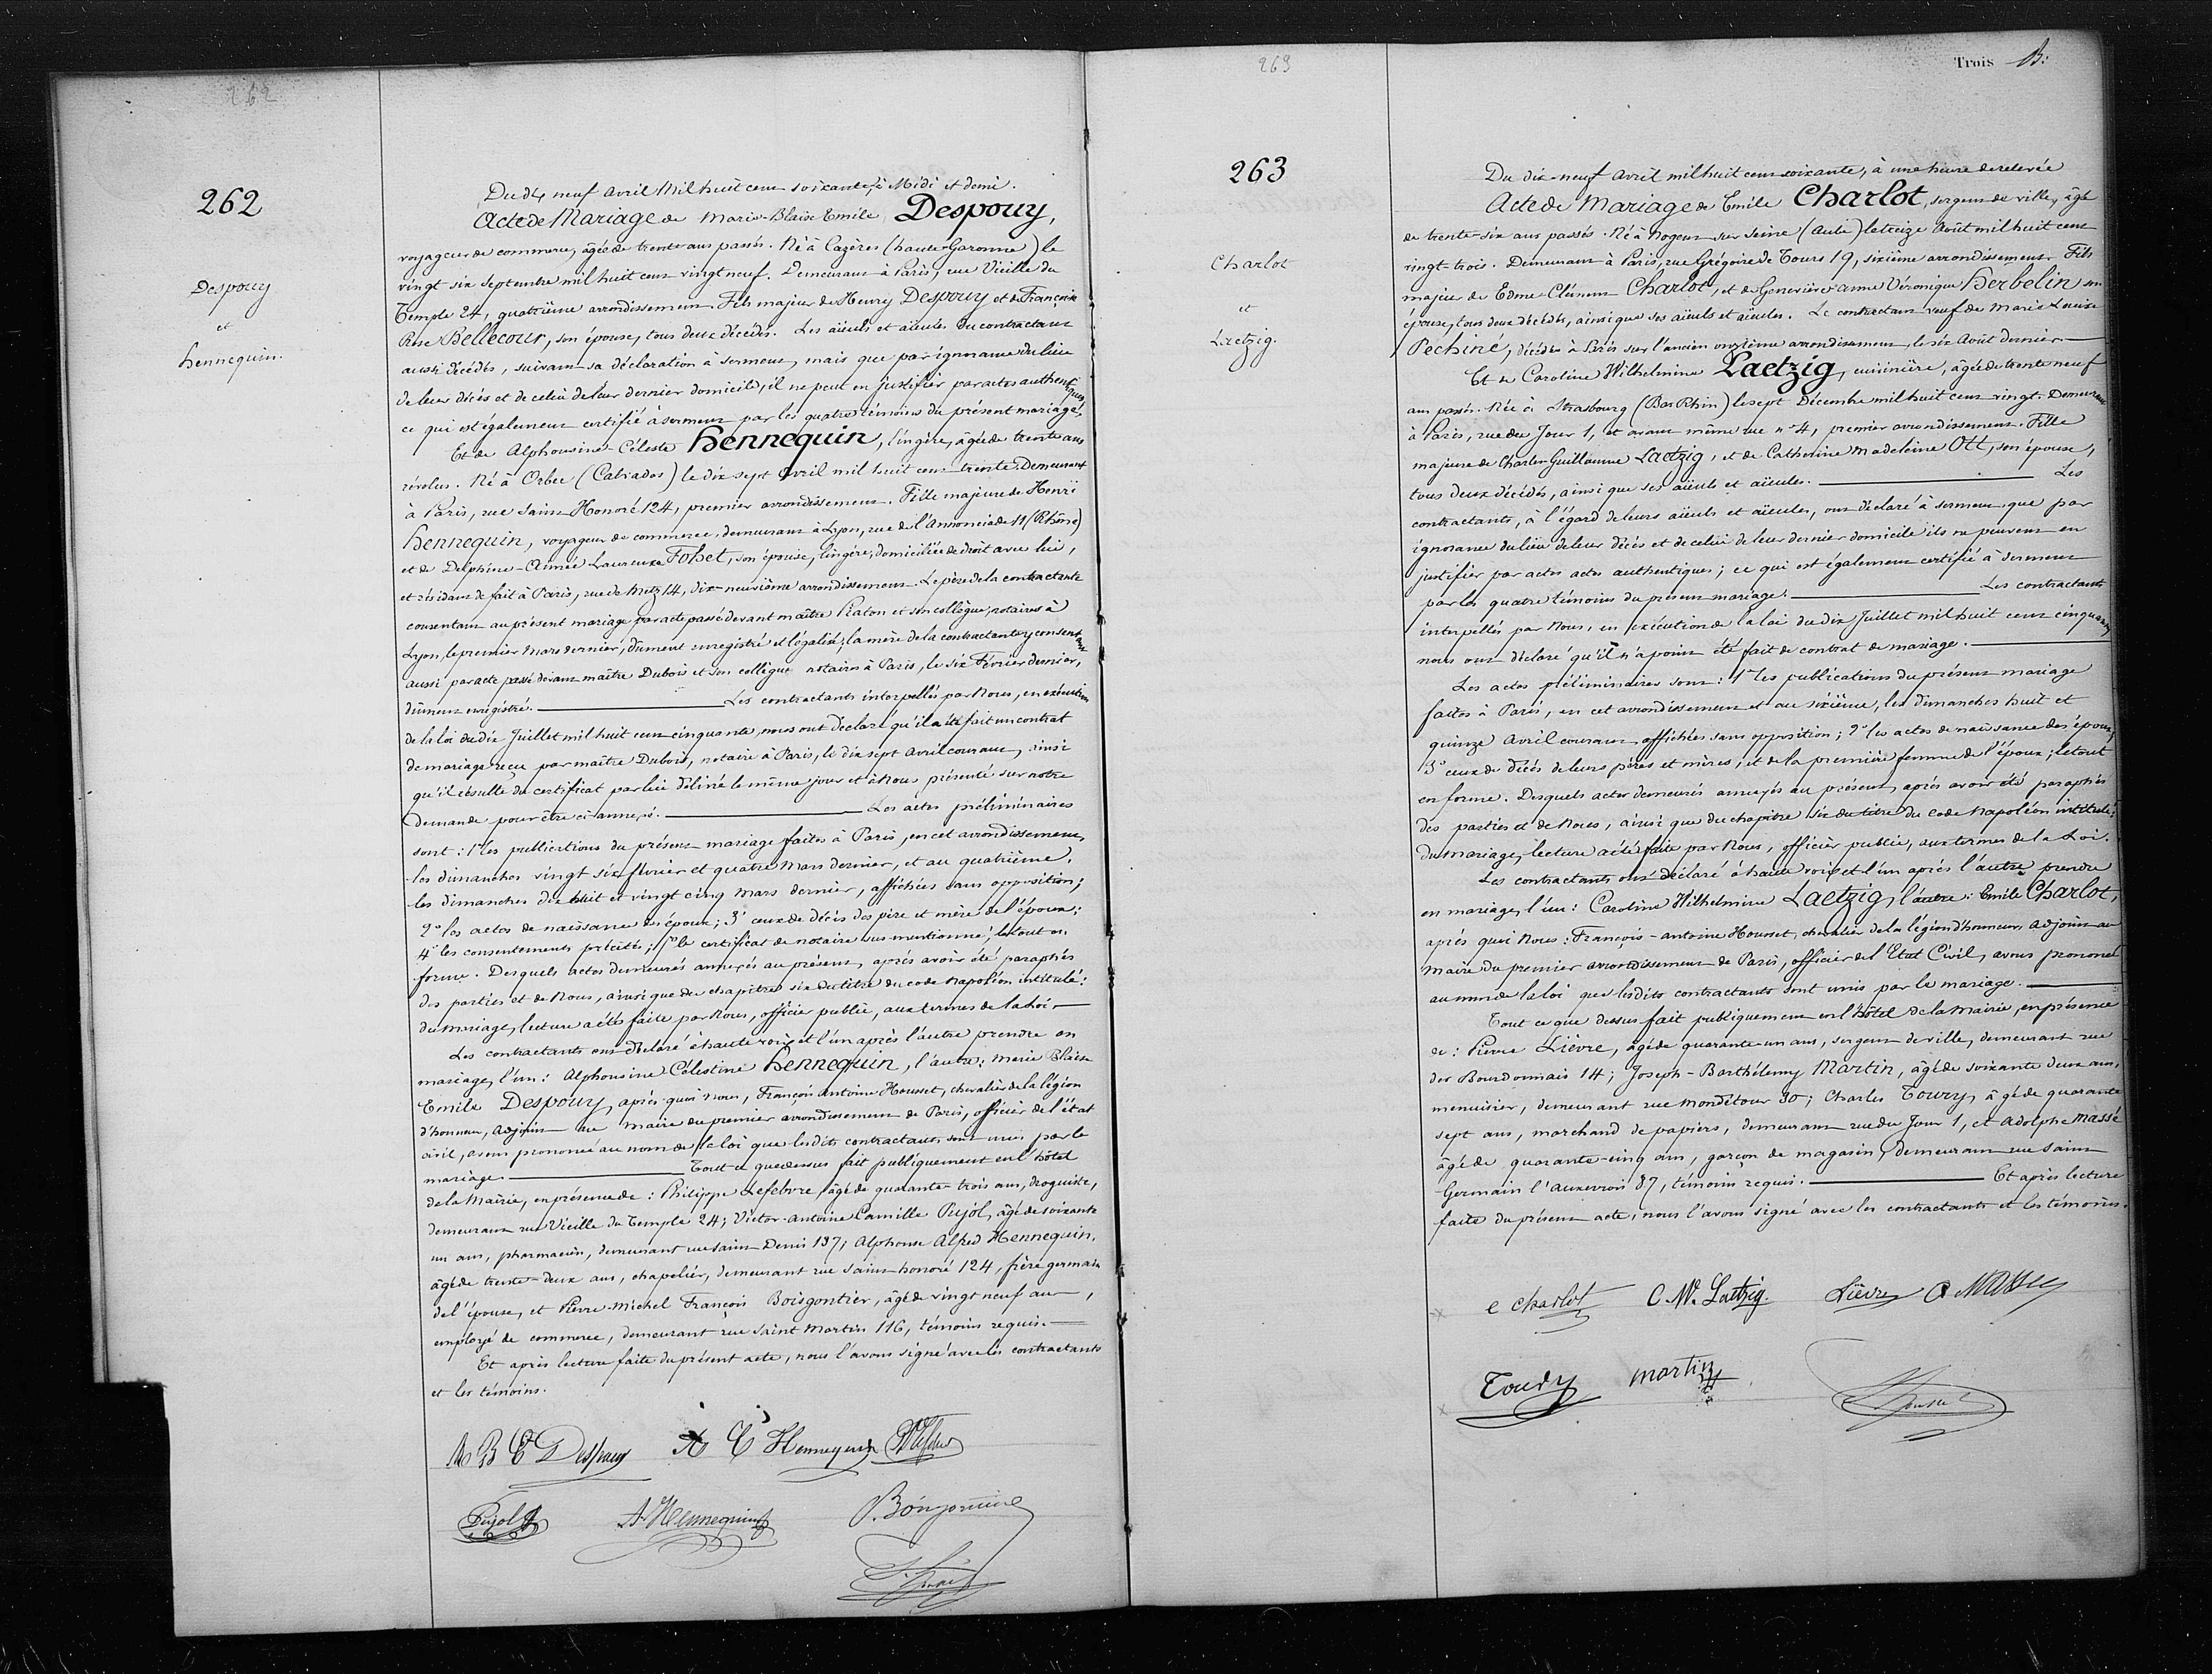 262
262
Despouy
et
hennequin.
Du dix neuf avril Mil huit cent soixante, à Midi et demi.
Acte de Mariage de Marie-Blaise Emile Despouy,
voyageur de commerce, âgé de trente ans passés. Né à Cazères (haute-Garonne) le
vingt six septembre mil huit cent vingt neuf. Demeurant à Paris, rue Vieille du
Temple 24, quatrième arrondissement. Fils majeur de Henry Despouy et de Françoise
Rose Bellecour, son épouse, tous deux décédés. Les aïeuls et aïeules du contractant
aussi décédés, suivant sa déclaration à serment, mais que par ignorance du lieu
de leur décès et de celui de leur dernier domicile, il ne peut en justifier par actes authentiques,
ce qui est également certifié à serment par les quatre témoins du présent mariage.
Et de Alphonsine-Céleste hennequin, lingère, âgée de trente ans
révolus. Né à Orbec (Calvados) le dix sept avril mil huit cent trente. Demeurant
à Paris, rue Saint Honoré 124, premier arrondissement. Fille majeure de Henri
hennequin, voyageur de commerce, demeurant à Lyon, rue de l'annonciade 11 (Rhône)
et de Delphine-Aimée Laurence Fohet, son épouse, lingère, domiciliée de droit avec lui,
et résidant de fait à Paris, rue de Metz 14, dix-neuvième arrondissement. Le père de la contractante
consentant au présent mariage par acte passé devant maître Piaton et son collègue, notaires à
Lyon, le premier Mars dernier, dûment enregistré et légalisé; la mère de la contractante y consentant
aussi par acte passé devant maître Dubois et son collègue notaires à Paris, le six Février dernier,
dûment enregistré. Les contractants interpellés par Nous, en exécution
de la loi du dix Juillet mil huit cent cinquante, nous ont déclaré qu'il a été fait un contrat
de mariage reçu par maître Dubois, notaire à Paris, le dix sept avril courant, ainsi
qu'il résulte du certificat par lui délivré le même jour et à Nous présenté sur notre
demande pour être ci-annexé. Les actes préliminaires
sont: 1° les publications du présent mariage faites à Paris, en cet arrondissement,
les dimanches vingt six février et quatre Mars dernier, et au quatrième,
les dimanches dix huit et vingt cinq Mars dernier, affichées sans opposition;
2° les actes de naissance des époux; 3° ceux de décès des père et mère de l'époux;
4° les consentements précités; 5° le certificat de notaire sus-mentionné; le tout en
forme. Desquels actes demeurés annexés au présent, après avoir été paraphés
des parties et de Nous, ainsi que du chapitre six du titre du code Napoléon intitulé:
du mariage, lecture a été faite par Nous, officier public, aux termes de la Loi.
Les contractants ont déclaré à haute voix et l'un après l'autre prendre en
mariage, l'un: Alphonsine Célestine hennequin, l'autre: Marie Blaise
Emile Despouy, après quoi nous, François antoine Housset, chevalier de la légion
d'honneur, adjoint au maire du premier arrondissement de Paris, officier de l'état
civil, avons prononcé au nom de la loi que lesdits contractants sont unis par le
mariage. Tout ce que dessus fait publiquement en l'hôtel
de la Mairie, en présence de: Philippe Lefebvre, âgé de quarante trois ans, droguiste,
demeurant rue Vieille du Temple 24; Victor-antoine Camille Pujol, âgé de soixante
un ans, pharmacien, demeurant rue Saint Denis 137; Alphonse Alfred Hennequin,
âgé de trente-deux ans, chapelier, demeurant rue Saint-honoré 124, frère germain
de l'épouse, et Pierre-Michel François Boisgontier, âgé de vingt neuf ans,
employé de commerce, demeurant rue Saint Martin 116, témoins requis.
Et après lecture faite du présent acte, nous l'avons signé avec les contractants
et les témoins.
M B E Despouy A C Hennequin
Pujol A. Hennequin
263
263
Charlot
et
Laetzig.
Trois
Du dix-neuf avril mil huit cent soixante, à une heure de relevée
Acte de Mariage de Emile Charlot, sergent de ville, âgé
de trente-six ans passés. Né à Nogent sur Seine (Aube) le treize Août mil huit cent
vingt-trois. Demeurant à Paris, rue Grégoire de Tours 19, sixième arrondissement. Fils
majeur de Edme Clément Charlot, et de Geneviève anne Véronique Herbelin son
épouse, tous deux décédés, ainsi que ses aïeuls et aïeules. Le contractant veuf de Marie Louise
Pechiné, décédée à Paris sur l'ancien onzième arrondissement, le six Août dernier.
Et de Caroline Wilhelmine Laetzig, cuisinière, âgée de trente neuf
ans passés. Née à Strasbourg (Bas Rhin) le sept Décembre mil huit cent vingt. Demeurant
à Paris, rue du Jour 1, et avant même rue n° 4, premier arrondissement. Fille
majeure de Charles Guillaume Laetzig, et de Catherine Madeleine Ott, son épouse,
tous deux décédés, ainsi que ses aïeuls et aïeules. Les
contractants, à l'égard de leurs aïeuls et aïeules, ont déclaré à serment que par
ignorance du lieu de leur décès et de celui de leur dernier domicile ils ne peuvent en
justifier par actes actes authentiques; ce qui est également certifié à serment
par les quatre témoins du présent mariage. Les contractants
interpellés par Nous, en exécution de la loi du dix Juillet mil huit cent cinquante,
nous ont déclaré qu'il n'a point été fait de contrat de mariage.
Les actes préliminaires sont: 1° les publications du présent mariage
faites à Paris, en cet arrondissement et au sixième, les dimanches huit et
quinze Avril courant affichées sans opposition; 2° les actes de naissance des époux;
3° ceux de décès de leurs pères et mères, et de la première femme de l'époux; le tout
en forme. Desquels actes demeurés annexés au présent, après avoir été paraphés
des parties et de Nous, ainsi que du chapitre six du titre du code Napoléon intitulé:
du Mariage, lecture a été faite par Nous, officier public, aux termes de la Loi.
Les contractants ont déclaré à haute voix et l'un après l'autre prendre
en mariage, l'un: Caroline Wilhelmine Laetzig, l'autre: Emile Charlot,
après quoi Nous: François-antoine Housset, chevalier de la légion d'honneur, adjoint au
maire du premier arrondissement de Paris, officier de l'Etat Civil, avons prononcé
au nom de la loi que lesdits contractants sont unis par le mariage.
Tout ce que dessus fait publiquement en l'hôtel de la Mairie, en présence
de: Pierre Lièvre, âgé de quarante-un ans, sergent de ville, demeurant rue
des Bourdonnais 14; Joseph-Barthélemy Martin, âgé de soixante deux ans,
menuisier, demeurant rue Mondétour 30; Charles Toury, âgé de quarante
sept ans, marchand de papiers, demeurant rue du Jour 1, et Adolphe Massé
âgé de quarante-cinq ans, garçon de magasin, demeurant rue Saint
Germain l'Auxerrois 87, témoins requis. Et après lecture
faite du présent acte, nous l'avons signé avec les contractants et les témoins.
e charlot C. W. Laetzig. Lièvre
martin